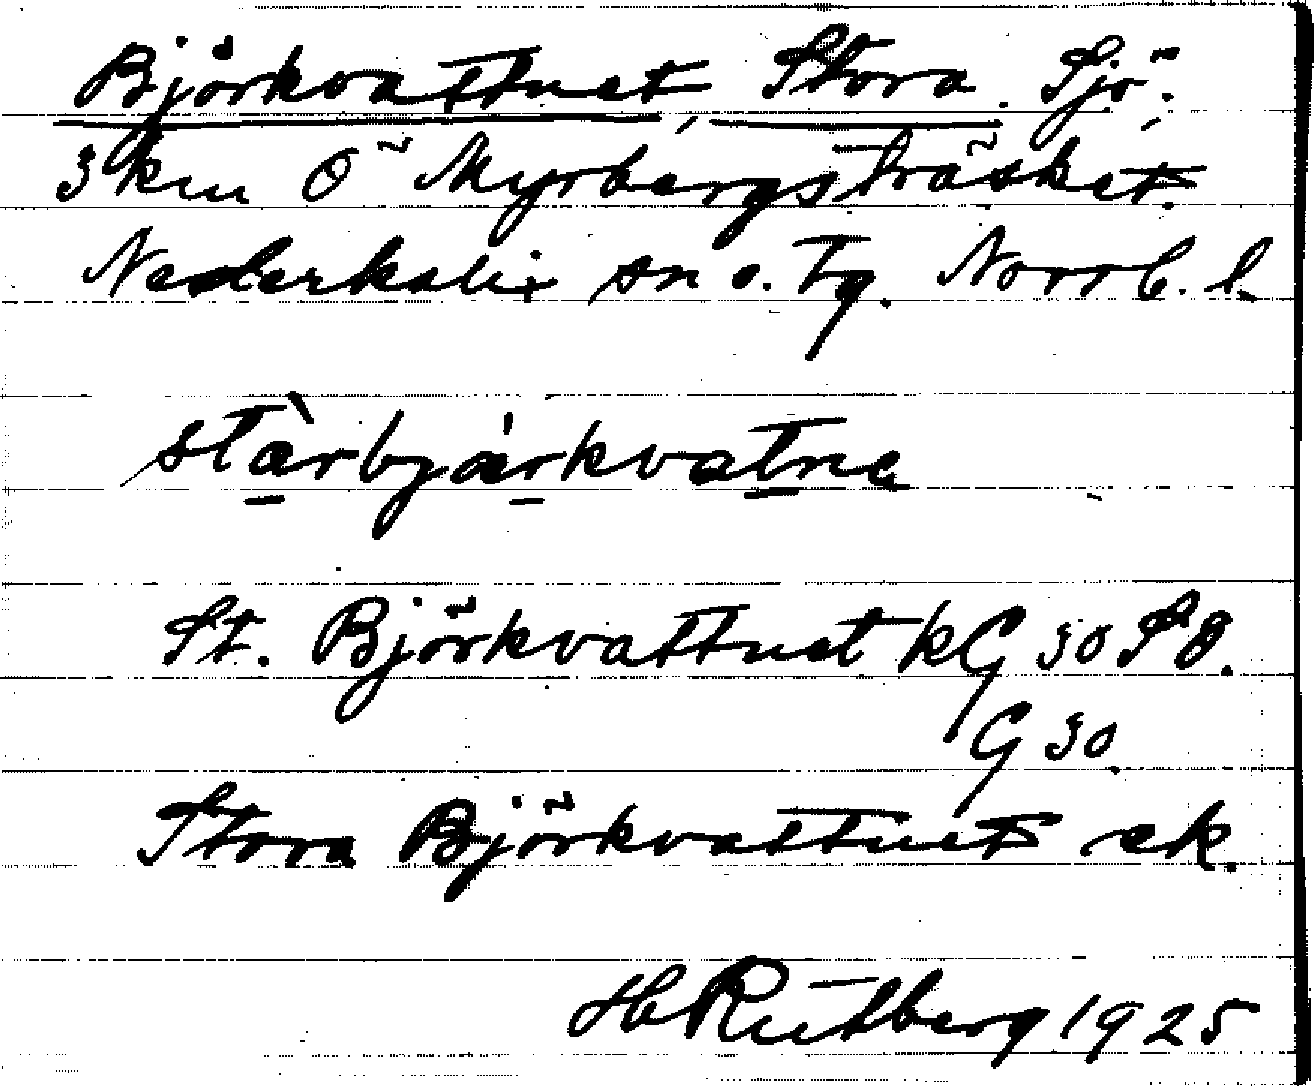 Björkvattnet, Stora. Sjö,
3 km Ö Myrbergsträsket.
Nederkalix sn o. tg. Norrb. l.
stàrbjàrkvatne
St. Björkvattnet kG 30 SO.
G 30.
Stora Björkvattnet ek.
H Rutberg 1925